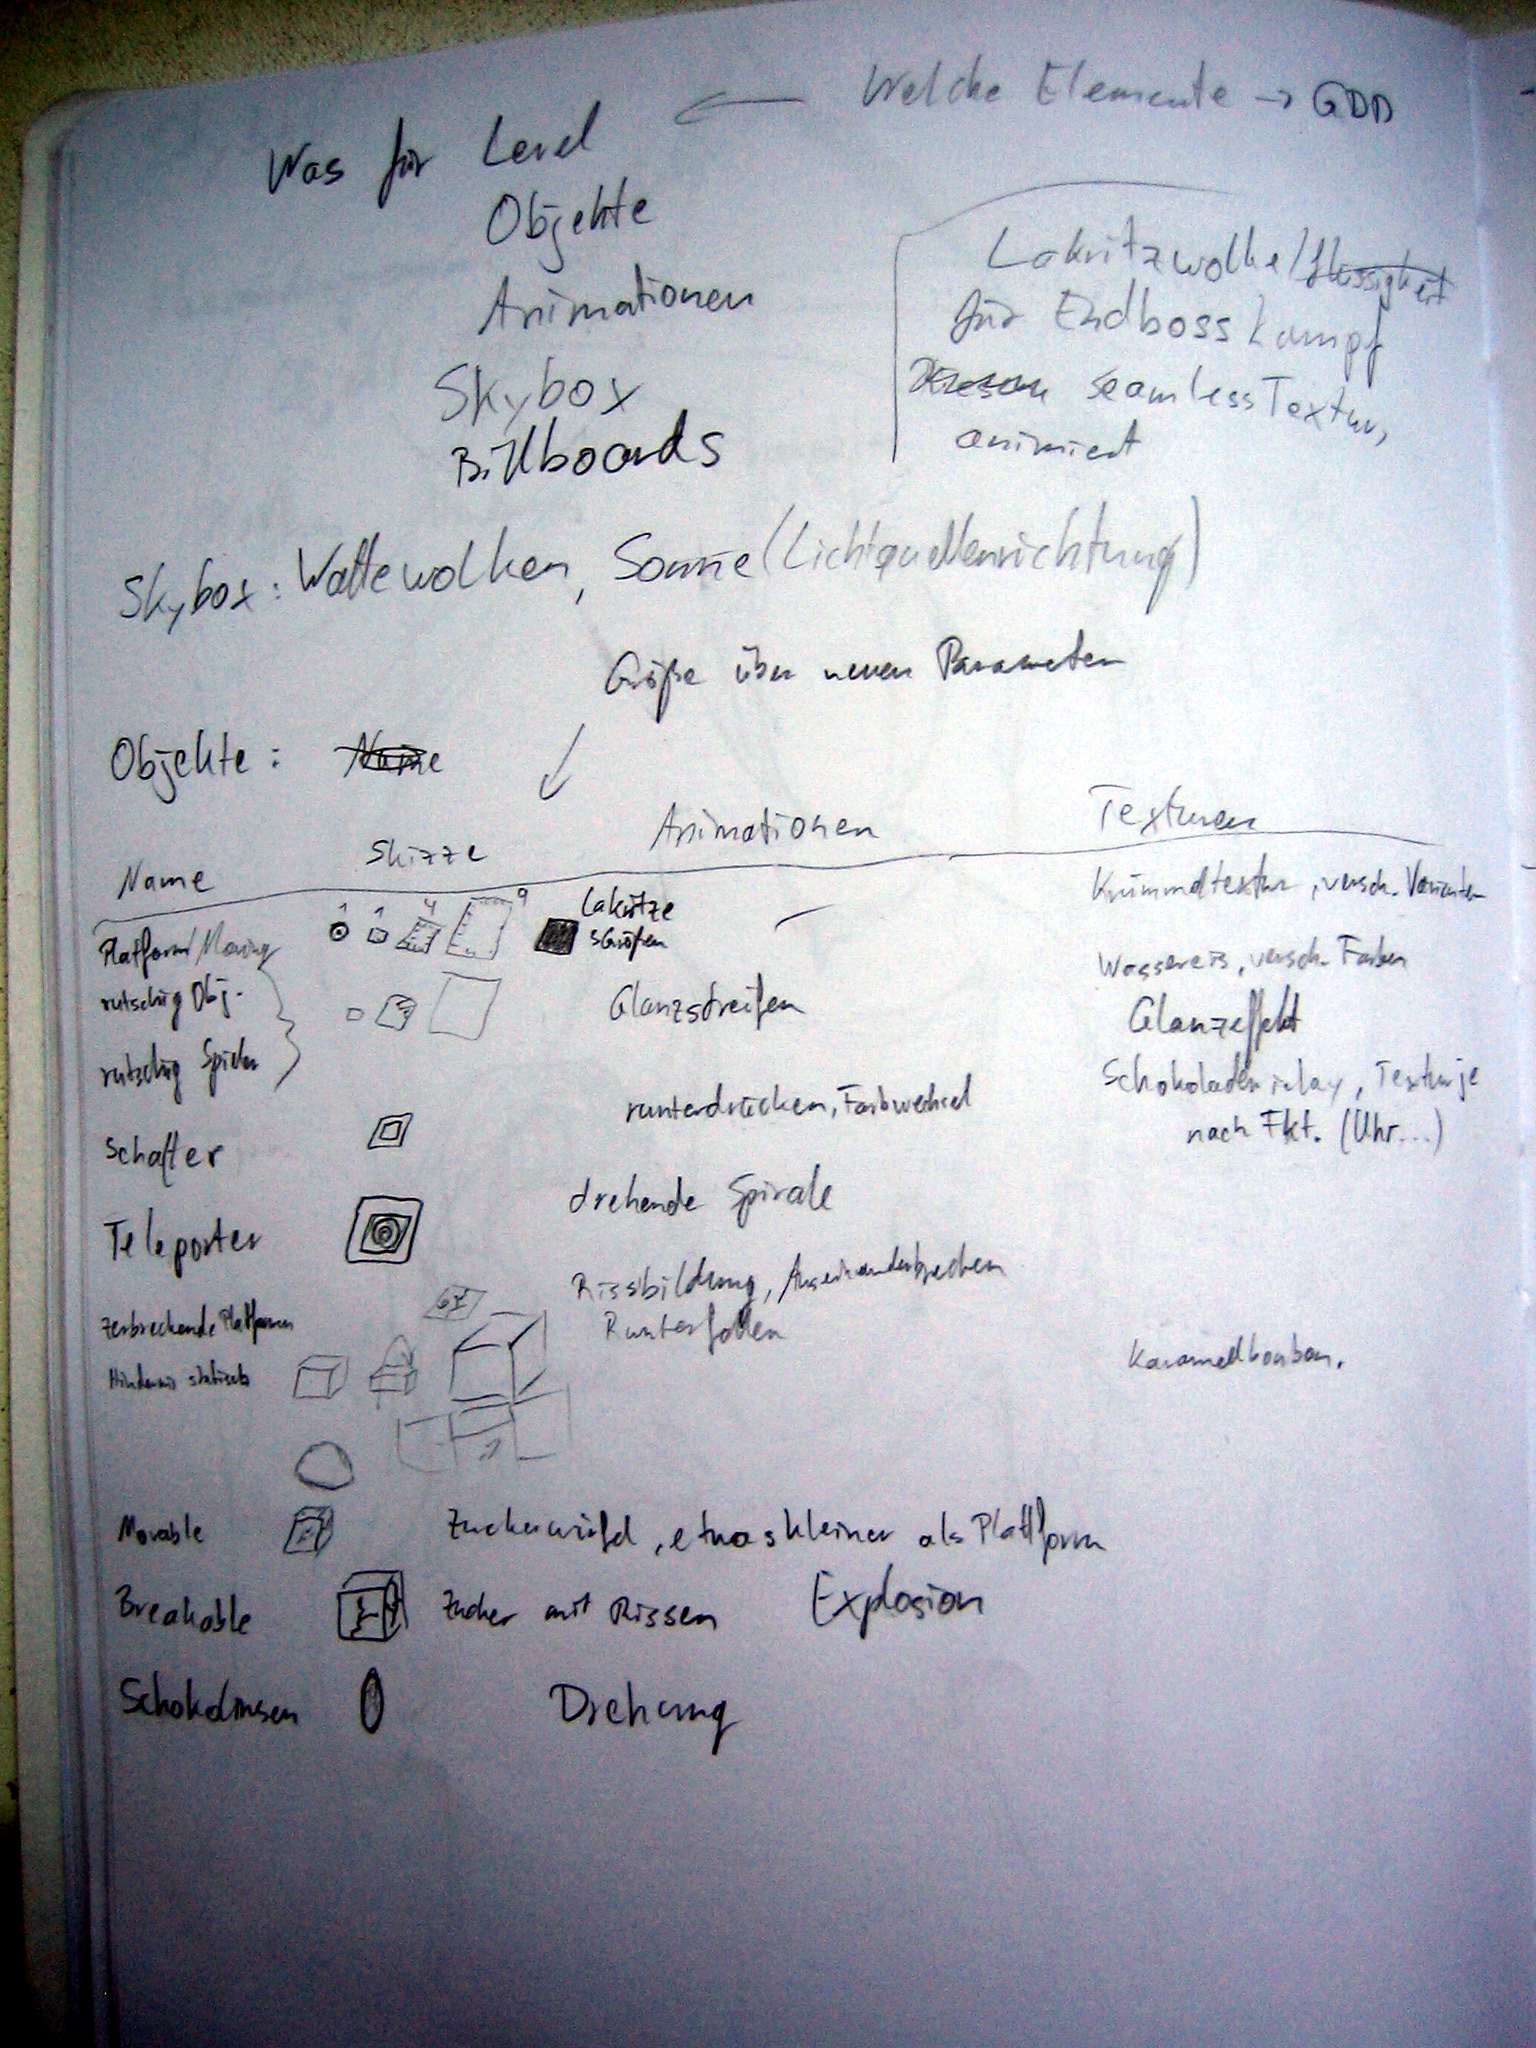 Welche Elemente → GDD
Was für Level
Objekte
Animationen
Skybox
Billboards
Lakritzwolke/flüssigkeit
für Endboss kampf
seamless Textur,
animiert
Skybox: Wattewolken, Sonne (Lichtquellenrichtung)
Größe über neuen Parameter
Objekte: Name
Name Skizze Animationen Texturen
Platform/Moving 1 1 4 9 Lakritze – Krümmeltextur, versch. Varianten
3 Größen
rutschig Obj. Glanzstreifen Wassereis, versch. Farben
Glanzeffekt
rutschig Spieler
Schalter runterdrücken, Farbwechsel Schokoladeninlay, Textur je
nach Fkt. (Uhr...)
Teleporter drehende Spirale
zerbrechende Plattform Rissbildung, Auseinanderbrechen
Runterfallen
Hindernis statisch Karamellbonbon.
Movable Zuckerwürfel, etwas kleiner als Plattform
Breakable Zucker mit Rissen Explosion
Schokolinsen Drehung